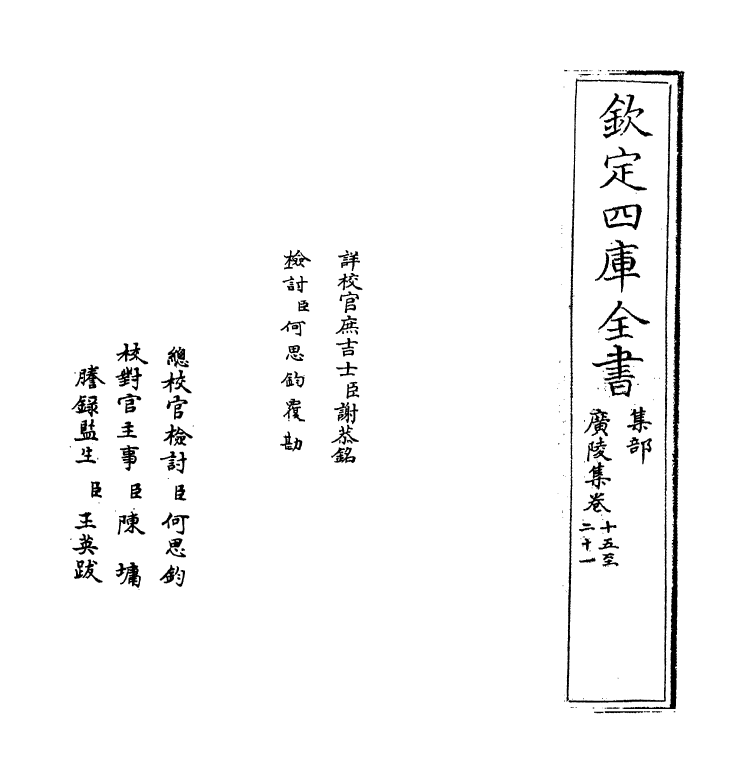 欽定四庫全書
集部
廣陵集卷
十五至
二十一
詳校官庶吉士臣謝恭銘
檢討臣何思鈞覆勘
總校官檢討臣何思鈞
校對官主事臣陳墉
謄録監生臣王英跋